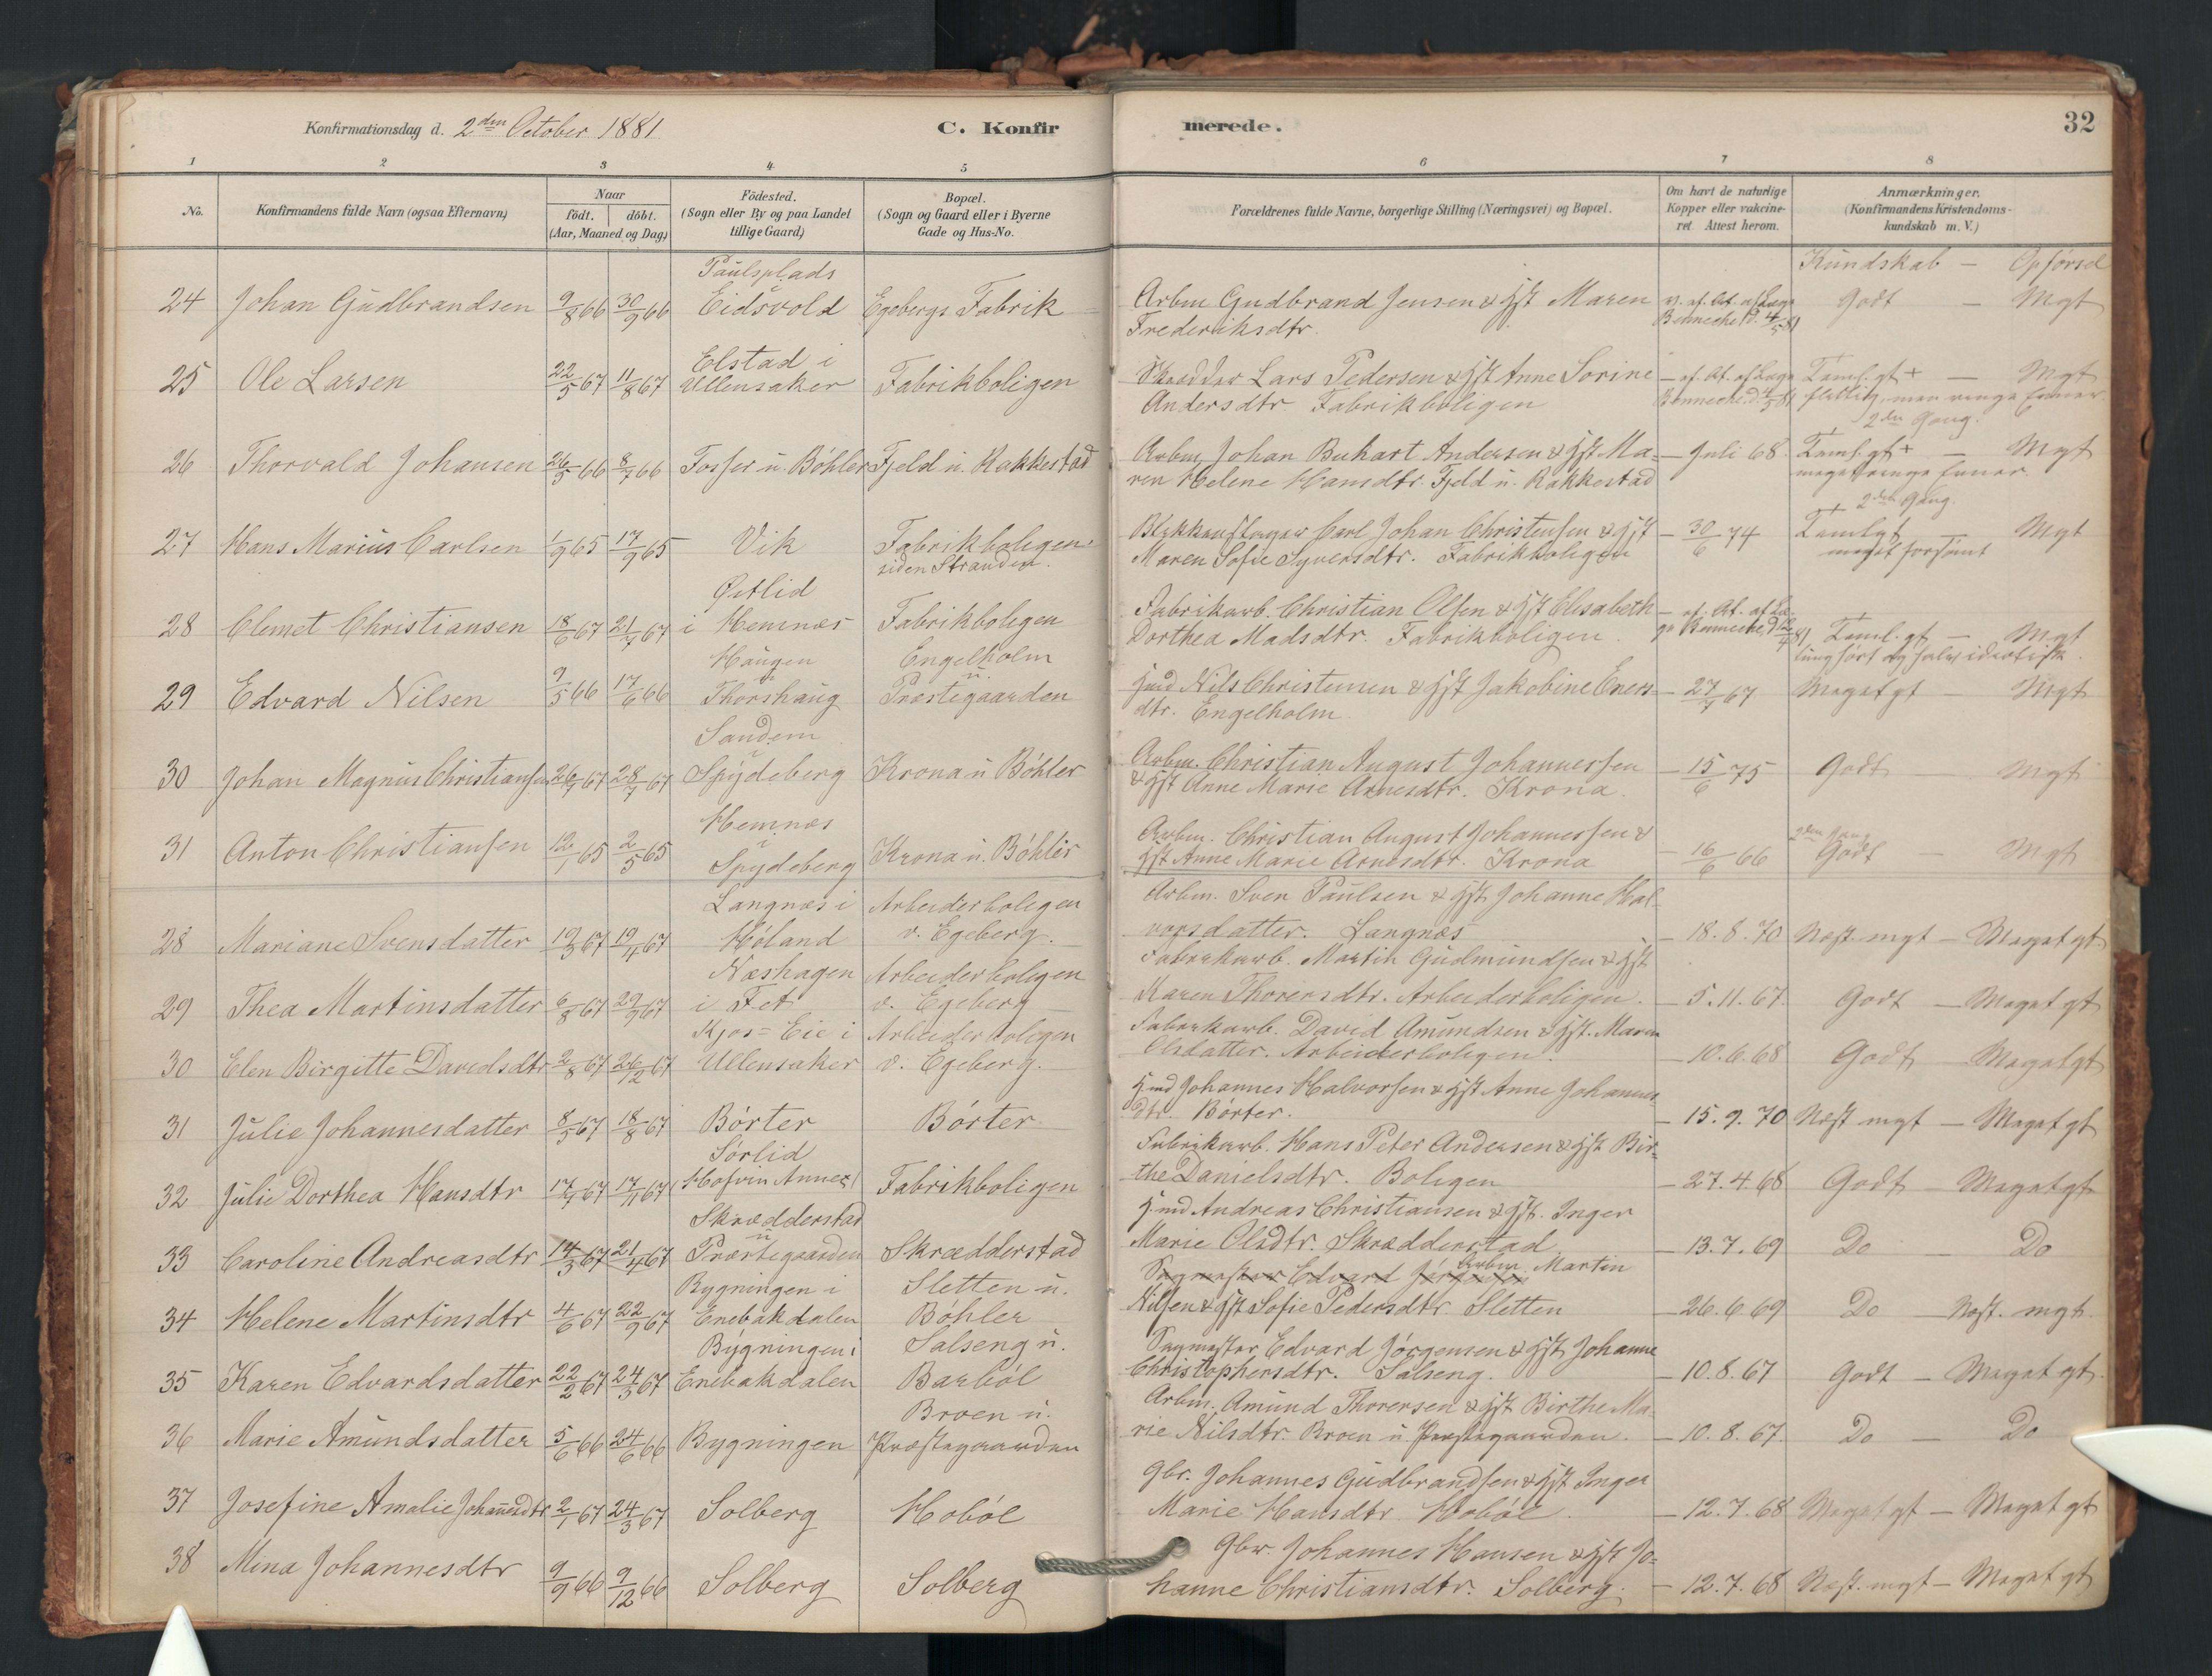 Konfirmationsdag d. 2den October 1881 C. Konfirmerede. 32
1 2 3 4 5 6 7 8
No.
Konfirmandens fulde Navn (ogsaa Efternavn)
Naar
födt. döbt.
(Aar, Maaned og Dag)
Födested.
(Sogn eller By og paa Landet
tillige Gaard)
Bopæl.
(Sogn og Gaard eller i Byerne
Gade og Hus-No.
Forældrenes fulde Navne, borgerlige Stilling (Næringsvei) og Bopæl.
Om havt de naturlige
Kopper eller vakcine-
ret. Attest herom.
Anmærkninger.
(Konfirmandens Kristendoms-
kundskab m. V.)
Kundskab — Opførsel
24 Johan Gudbrandsen 9/8 66 30/9 66 Paulsplads i Eidsvold Egebergs Fabrik
Arbm Gudbrand Jensen & Hst Maren
Frederiksdtr.
v. af. At. af Læge
Bennecke d. 4/5 81
Godt — Mgt
25 Ole Larsen 22/5 67 11/8 67 Elstad i Ullensaker Fabrikboligen
Skrædder Lars Pedersen & Hst Anne Sorine
Andersdtr. Fabrikboligen
— af. At. af Læge
Bennecke d. 4/5 81
Teml. gt + — Mgt
flittig, men ringe Evner.
2den Gang.
26 Thorvald Johansen 26/5 66 8/7 66 Fosser u. Böhler Fjeld u. Rakkestad
Arbm. Johan Buhart Andersen & Hst Ma-
ren Helene Hansdtr. Fjeld u. Rakkestad
— Juli 68
Teml. gt + — Mgt
meget ringe Evner.
2den Gang.
27 Hans Marius Carlsen 1/9 65 17/9 65 Vik Fabrikboligen
siden Stranden.
Blikkenslager Carl Johan Christensen & Hst
Maren Sofie Syversdtr. Fabrikboligen
— 30/6 74
Temlgt — Mgt
meget forsömt
28 Clemet Christiansen 18/6 67 21/7 67 Østlid i Hemnæs Fabrikboligen
Fabrikarb. Christian Olsen & Hst Elisabeth
Dorthea Madsdtr. Fabrikboligen
— af. At. af Læ-
ge Bennecke, d 12/4 81
Teml. gt — Mgt
tunghört og halv idiotisk.
29 Edvard Nilsen 9/5 66 17/6 66 Haugen u. Thorshaug Engelholm u. Præstegaarden
Hmd Nils Christensen & Hst Jakobine Eners-
dtr. Engelholm
— 27/7 67
Meget gt — Mgt
30 Johan Magnus Christiansen 26/4 67 28/7 67 Sandem i Spydeberg Krona u Böhler
Arbm. Christian August Johannessen
& Hst Anne Marie Arnesdtr. Krona.
— 15/6 75
Godt — Mgt
31 Anton Christiansen 12/1 65 2/5 65 Hemnæs i Spydeberg Krona u. Böhler
Arbm. Christian August Johannessen &
Hst Anne Marie Arnesdtr. Krona
— 16/6 66
2den Gang
Godt — Mgt
28 Mariane Svensdatter 19/3 67 19/4 67 Langnæs i Höland Arbeiderboligen v. Egeberg.
Arbm. Sven Paulsen & Hst Johanne Hal-
vorsdatter. Langnæs
— 18. 8. 70 Næst. mgt — Meget gt
29 Thea Martinsdatter 6/8 67 29/9 67 Næshagen i Fet Arbeiderboligen v. Egeberg
Fabrikarb. Martin Gudmundsen & Hst
Karen Thorersdtr. Arbeiderboligen.
— 5. 11. 67. Godt — Meget gt
30 Elen Birgitte Davidsdtr 2/8 67 26/12 67 Kjos=Eie i Ullensaker Arbeiderboligen v. Egeberg.
Fabrikarb. David Amundsen & Hst. Maren
Olsdatter. Arbeiderboligen.
— 10. 6. 68 Godt — Meget gt
31 Julie Johannesdatter 8/5 67 18/8 67 Börter Börter
Hmd Johannes Halvorsen & Hst Anne Johannes-
dtr. Börter.
— 15. 9. 70 Næst mgt — Meget gt
32 Julie Dorthea Hansdtr 17/4 67 17/11 67 Sörlid Hofvin Annex Fabrikboligen
Fabrikarb. Hans Peter Andersen & Hst Bir-
the Danielsdtr. Boligen
— 27. 4. 68 Godt — Meget gt
33 Caroline Andreasdtr 14/3 67 21/4 67 Skrædderstad u Præstegaarden Skrædderstad
Hmd Andreas Christiansen & Hst. Inger
Marie Olsdtr. Skrædderstad
— 13. 7. 69 Do — Do
34 Helene Martinsdtr 4/6 67 22/9 67 Bygningen i Enebakdalen Sletten u. Böhler
Sagmester Edvard Jörgensen Arbm. Martin
Nilsen & Hst Sofie Pedersdtr Sletten
— 26. 6. 69 Do — Næst. mgt.
35 Karen Edvardsdatter 22/2 67 24/3 67 Bygningen i Enebakdalen Salseng u. Barböl
Sagmester Edvard Jörgensen & Hst Johanne
Christophersdtr. Salseng.
— 10. 8. 67 Godt — Meget gt.
36 Marie Amundsdatter 5/6 66 24/6 66 Bygningen Broen u. Præstegaarden
Arbm. Amund Thorersen & Hst Birthe Ma-
rie Nilsdtr. Broen u. Præstegaarden.
— 10. 8. 67. Do — Do
37 Josefine Amalie Johannesdtr 2/1 67 24/3 67 Solberg Hoböl
Gbr. Johannes Gudbrandsen & Hst Inger
Marie Hansdtr Hoböl.
— 12. 7. 68 Meget gt — Meget gt
38 Mina Johannesdtr 9/9 66 9/12 66 Solberg Solberg
Gbr. Johannes Hansen & Hst Jo-
hanne Christiansdtr. Solberg.
— 12. 7. 68 Næst. mgt — Meget gt